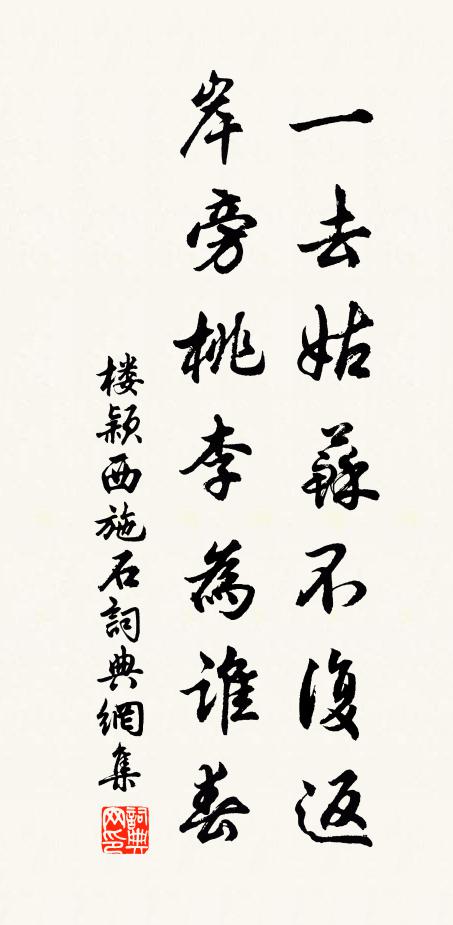 一去姑蘇不復返
岸旁桃李為誰春
楼颖西施石詞典網集
詞典網印